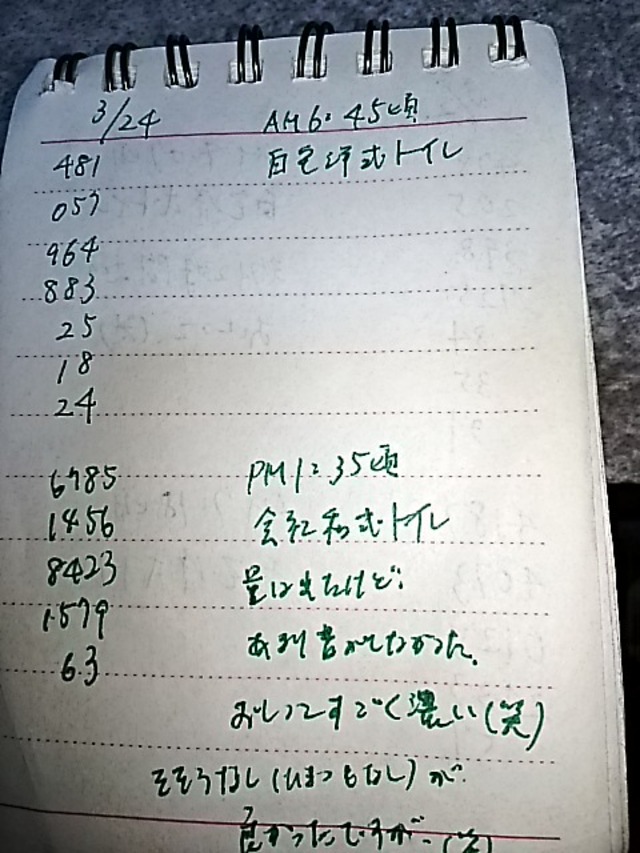 3/24 AM6:45頃
481 自宅洋式トイレ
057
964
883
25
18
24
6785 PM1:35頃
1456 会社和式トイレ
8423 量は出たけど、
1579 あまり音がしなかった。
63
おしっこすごく濃い(笑)
そそうなし(ひまつもなし)が
良かったですが、(笑)